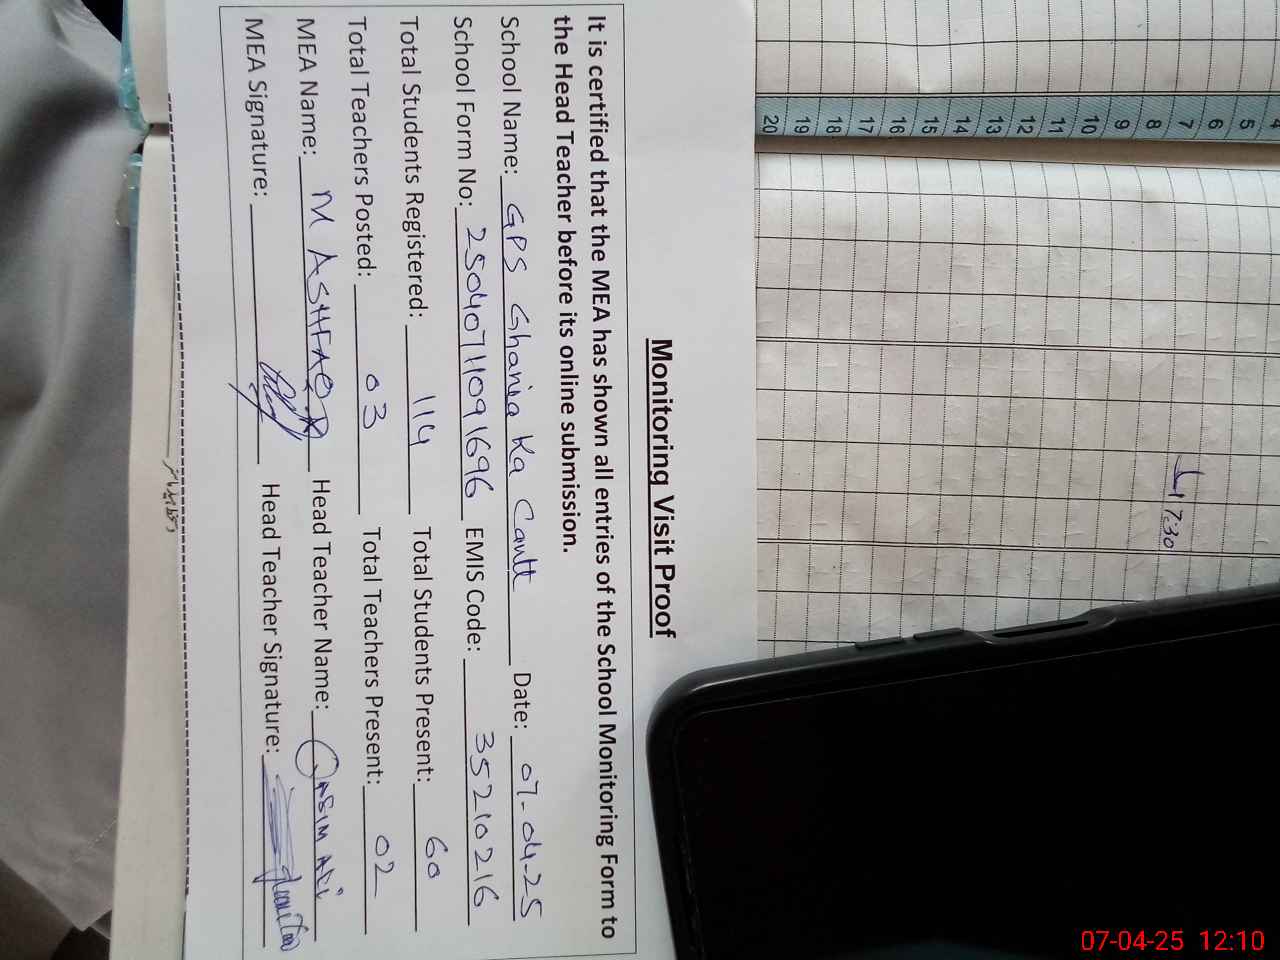 Monitoring Visit Proof
It is certified that the MEA has shown all entries of the School Monitoring Form to
the Head Teacher before its online submission.
School Name: GPS Ghania Ka Cantt Date: 07-04-25
School Form No: 2504071091696 EMIS Code: 35210216
Total Students Registered: 114 Total Students Present: 60
Total Teachers Posted: 03 Total Teachers Present: 02
MEA Name: M ASHFAQ Head Teacher Name: QASIM ALI
MEA Signature: Head Teacher Signature:
20 19 18 17 16 15 14 13 12 11 10 9 8 7 6 5 4
7:30
07-04-25 12:10